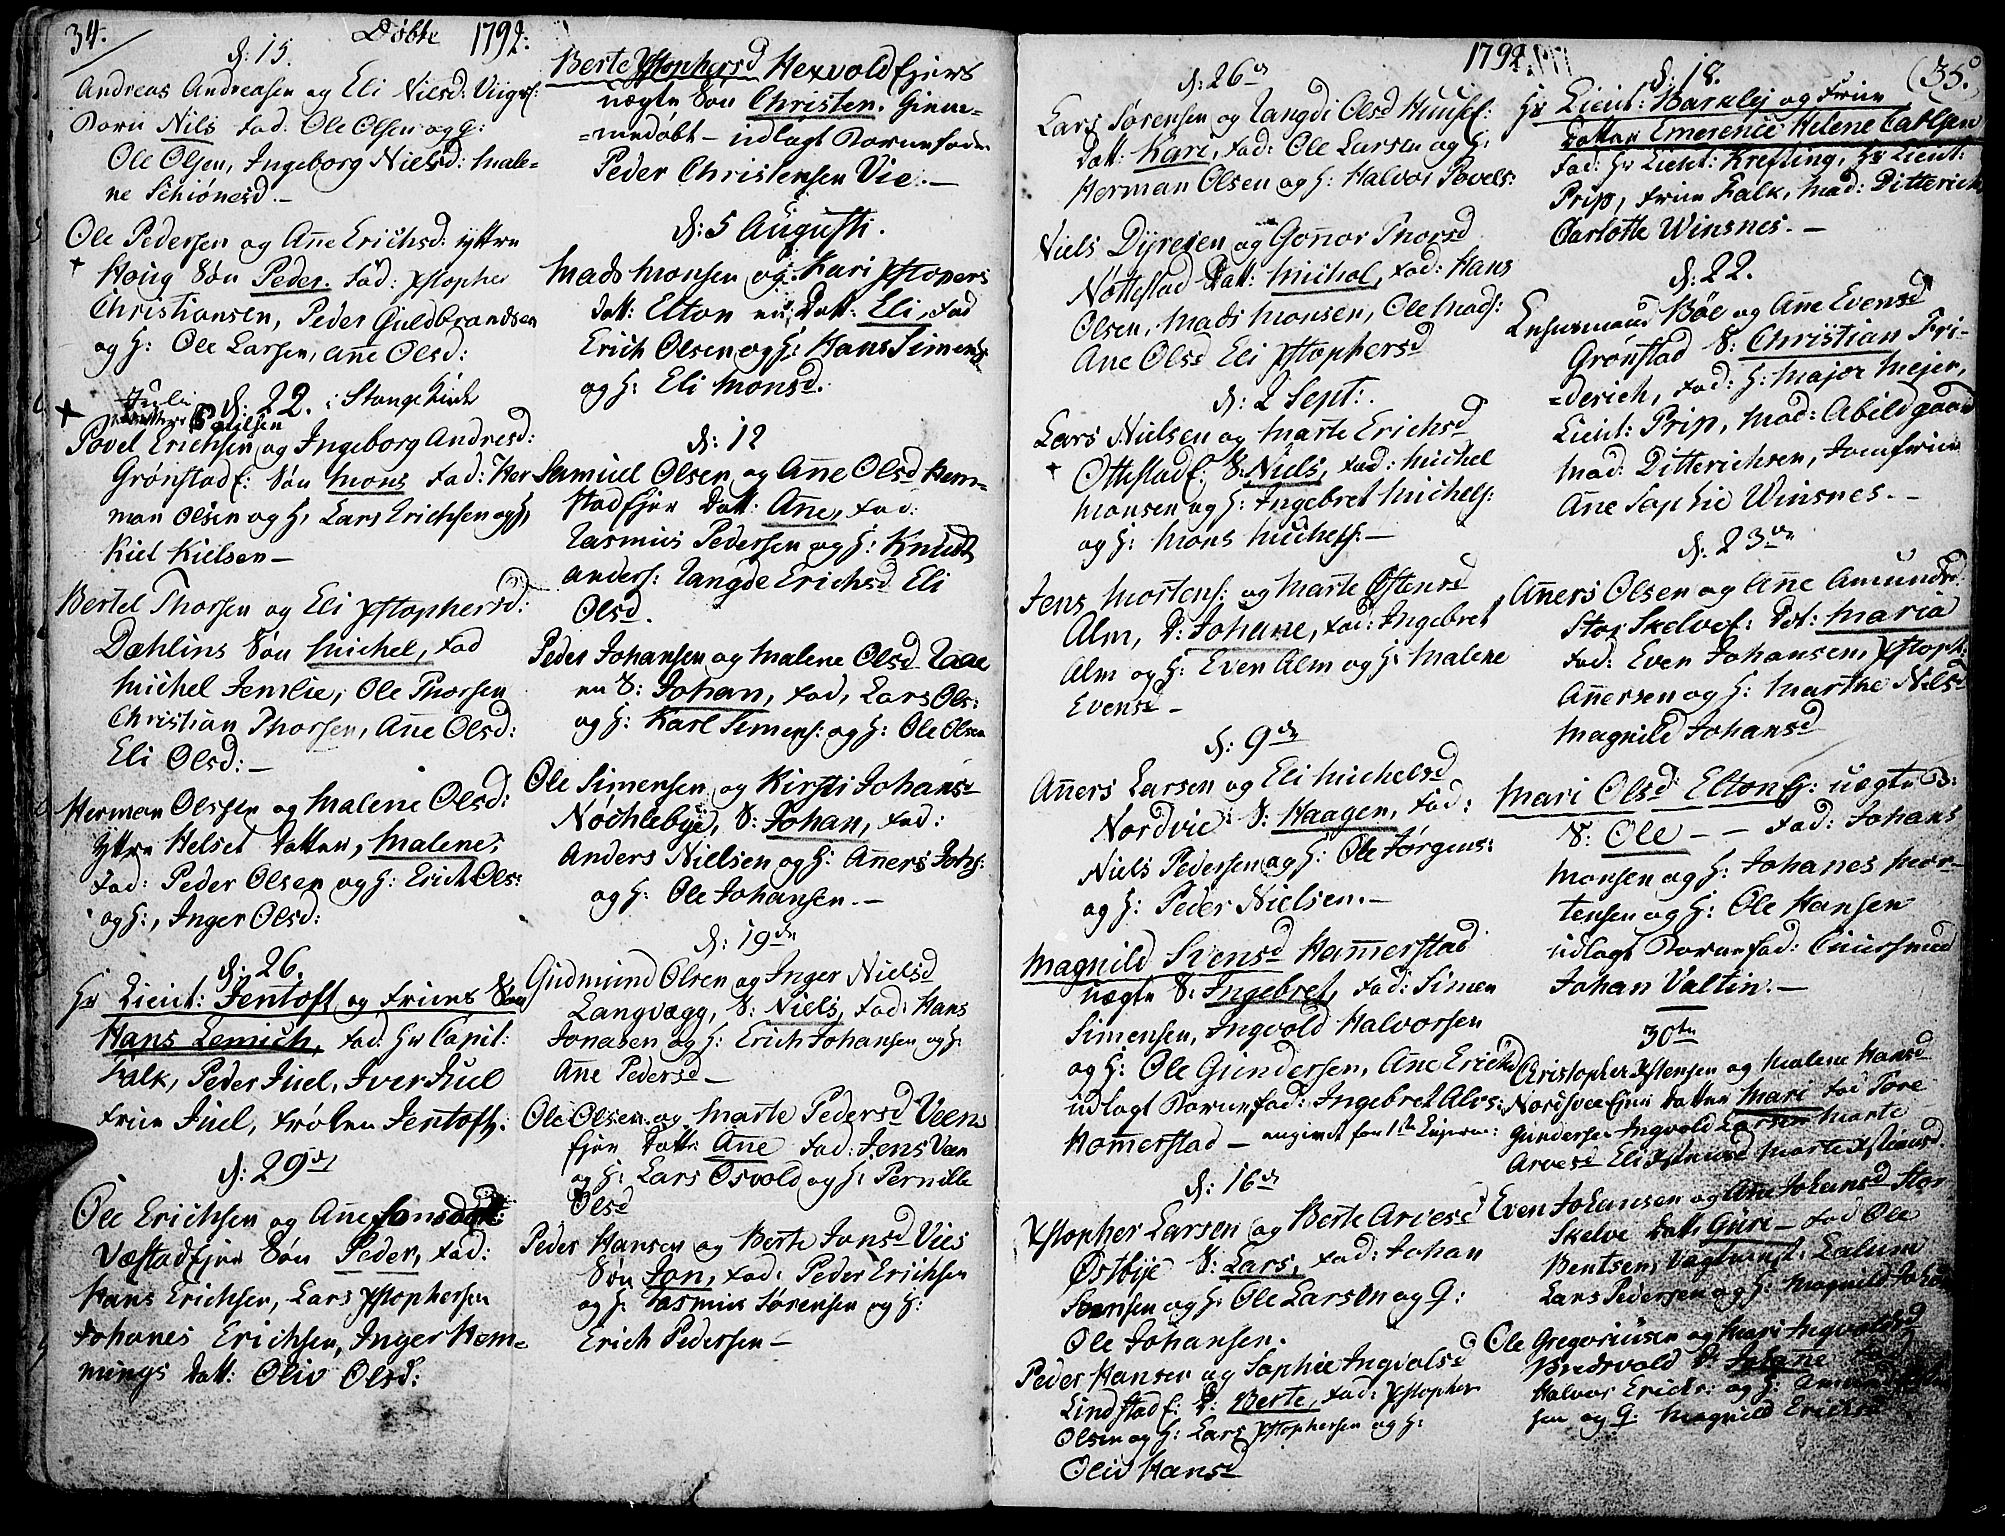 34.
Døbte 1792:
d: 15.
Andreas Andreasen og Eli Nielsd:
Barn Nils fad: Ole Olsen og H:
Ole Olsen, Ingeborg Nielsd: male=
ne Schiønesd.—
Ole Pedersen og Ane Erichsd: yttre
+ Houg Søn Peder. fad: Xstopher
Christiansen, Peder Guldbrandsen
og H: Ole Larsen, Ane Olsd:
Juli
+ d: 22. i Stange Kirke
Povel Erichsen og Ingeborg Andresd:
Grønstad E: Søn Mons fad: Her
man Olsen og H, Lars Erichsen og H,
Kiel Kielsen—
Bertel Thorsen og Eli Xstophersd:
Dæhlins Søn Michel, fad
Michel Jemlie, Ole Thorsen
Christian Thorsen, Ane Olsd:
Eli Olsd:—
Herman Olssen og Malene Olsd:
yttre Helset Datter, Malene,
fad: Peder Olsen og H: Erich Ols:
og H:, Inger Olsd:
d: 26.
Hr Lieut: Jentoft og Frues Søn
Hans Lemich, fad: Hr Capit:
Falk, Peder Juel, Iver Juel
Frue Juel, Frøken Jentoft.
d: 29de
Ole Erichsen og Ane
Væstad Ejer Søn Peder, fad:
Hans Erichsen, Lars Xstophersen
Johanes Erichsen, Inger Hem=
mings Datt: Oliv Olsd:
Berte Xstophersd Hexvold Ejers
uægte Søn Christen. Hieme=
=medøbt— udlagt Barnefader
Peder Christensen Vie.—
d: 5 Augusti.
Mads Monsen og Kari Xstophers
datt: Elton ei: Datt: Eli, fad
Erich Olsen og H: Hans Simens:
og H: Eli Monsd:
d: 12
Samuel Olsen og Ane Olsd Hem=
stad Ejer Datt: Ane, fad:
Rasmus Pedersen og H: Knud
Anders: Rangde Erichsd Eli
Olsd.
Peder Johansen og Malene Olsd Raae
en S: Johan, fad, Lars Ols:
og H: Karl Simens: og H: Ole Olsen
Ole Simensen og Kirsti Johansd
Nøchlebye, S: Johan, fad:
Anders Nielsen og H: Aners Johs:
og H: Ole Johansen.—
d: 19de
Gudmund Olsen og Inger Nielsd
Langvægg, S: Niels, fad: Hans
Jonasen og H: Erich Johansen og H:
Ane Pedersd—
Ole Olsen og Marte Pedersd Veen
Ejer Datt: Ane fad: Jens Veen
og H: Lars Osvold og H: Pernille
Olsd
Peder Hansen og Berte Jonsd Vies
Søn Jon, fad: Peder Erichsen
og H: Rasmus Sørensen og H:
Erich Pedersen—
1792.
(35.
d: 26de
Lars Sørensen og Rangdi Olsd Huus E:
Datt: Kari, fad: Ole Larsen og H:
Herman Olsen og H: Halvor Povels:
Niels Dyresen og Gonor Thorsd
Nøttestad Datt: Michol, fad: Hans
Olsen, Mads Monsen, Ole Mads:
Ane Olsd Eli Xstophersd
d: 2 Sept:.
Lars Nielsen og Marte Erichsd
+ Ottestad E: S: Niels, fad: Michel
Monsen og H: Ingebret Michels:
og H: Mons Michels:—
Jens Mortens: og Marte Østensd
Alm, D: Johane, fad: Ingebret
Alm og H: Even Alm og H: Malene
Evensd—
d: 9de
Aners Larsen og Eli Michelsd
Nordvie S: Haagen, fad:
Niels Pedersen og H: Ole Jørgens:
og H: Peder Nielsen.—
Magnild Svensd Hamerstad
uægte S: Ingebret, fad: Simen
Simensen, Ingvold Halvorsen
og H: Ole Gundersen, Ane Erichsd
udlagt Barnefad: Ingebret Alvs:
Homerstad — angivet for 1ste
d: 16de
Xstopher Larsen og Berte Arvesd
Østbye S: Lars, fad: Johan
Svensen og H: Ole Larsen og H:
Ole Johansen.
Peder Hansen og Sophie Ingvolsd
Lindstad E: D: Berte, fad: Xstopher
Olsen og H: Lars Xstophersen og H:
Oliv Hansd
d: 18.
Hr Lieut: Barkley og Frue
Datter Emerence Helene Catlsen
fad: Hr Lieut: Krefting, Hr Lieut:
Prip, Frue Falk, Mad: Ditterich
Carlotte Winsnes.—
d: 22.
Bøe og Ane Evensd
Grønstad S: Christian Fri-
=derich, fad: H: Major Mejer,
Lieut: Prip, Mad: Abildgaard
Mad: Ditterichsen, Jomfrue
Ane Sophie Winsnes.—
d: 23de
Aners Olsen og Ane Amundsd
Stor Skelve E: Dat: Maria
fad: Even Johansen, Xstoph:
Anersen og H: Marthe Nilsd
Magnild Johansd
Mari Olsd Elton E: uægte B:
S: Ole — — fad: Johans
Monsen og H: Johanes Mor=
tensen og H: Ole Hansen
udlagt Barnefad:
Johan Valtin.—
30te
Christopher Xstensen og Malene Hansd
Nordsvee Ejer Datter Mari fad Tore
Gundersen Ingvold Larsen Marte
Arvesd Eli Marte Xstiansd
Even Johansen og Ane Johansd Stor
Skelve Datt: Guri— fad Ole
Bentsen,
Lars Pedersen og H: Magnild Johansd
Ole Gregoriusen og Mari Ingvoldsd
Bredvold D: Johane fad
Halvor Erichs: og H: Amund
sen og H: Magnild Erichsd